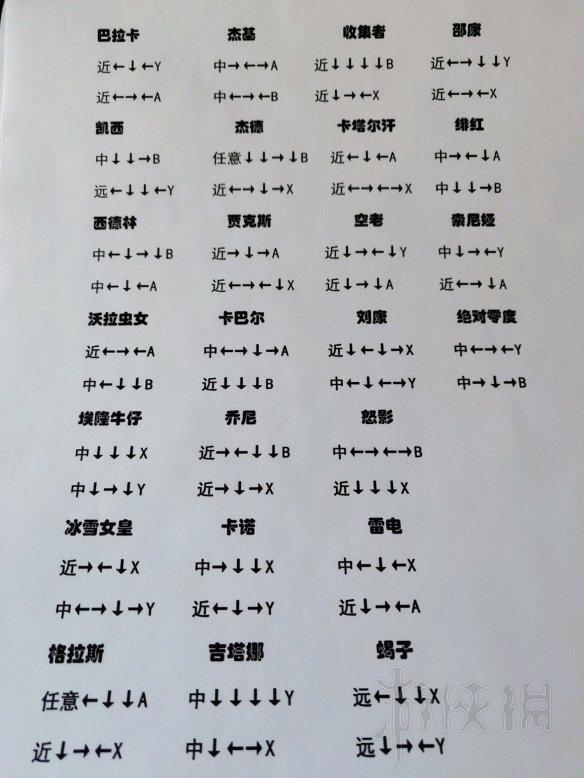 巴拉卡 杰基 收集者 邵康
近←↓←Y 中→←→A 近↓↓↓↓B 近←→↓↓Y
近←→←A 中←→←B 近↓→←X 近←→←X
凯西 杰德 卡塔尔汗 绯红
中↓↓→B 任意↓↓→↓B 近←↓←A 中→←↓A
远←↓↓←Y 近←→↓→X 近←→←→X 中↓↓→B
西德林 贾克斯 空老 索尼娅
中←↓→↓B 近→↓→A 近↓→←↓Y 中↓→←Y
中←↓←A 近←→←↓X 近↓→↓A 近←→↓A
沃拉虫女 卡巴尔 刘康 绝对零度
近←→←A 中←→↓→A 近↓←↓→X 中←→←Y
中←↓↓B 近↓↓↓B 中←↓←→Y 中→↓→B
埃隆牛仔 乔尼 怒影
中↓↓↓X 近→←↓↓B 中←→←→B
中↓→↓Y 近→↓→X 近↓↓↓X
冰雪女皇 卡诺 雷电
近→←↓X 中→↓↓X 中←↓←X
中←→↓→Y 近←↓→Y 近↓→←A
格拉斯 吉塔娜 蝎子
任意←↓↓A 中↓↓↓↓Y 远←↓↓X
近↓→←X 中↓←→X 远↓→←Y